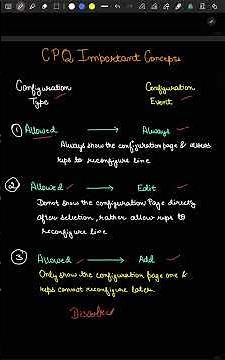 CPQ Important Concepts
Configuration Type
Configuration Event
① Allowed → Always
Always show the configuration page & allows
reps to reconfigure line
② Allowed → Edit
Do not show the configuration Page directly
after selection, rather allow reps to
reconfigure line
③ Allowed → Add
Only show the configuration page one &
reps cannot reconfigure later